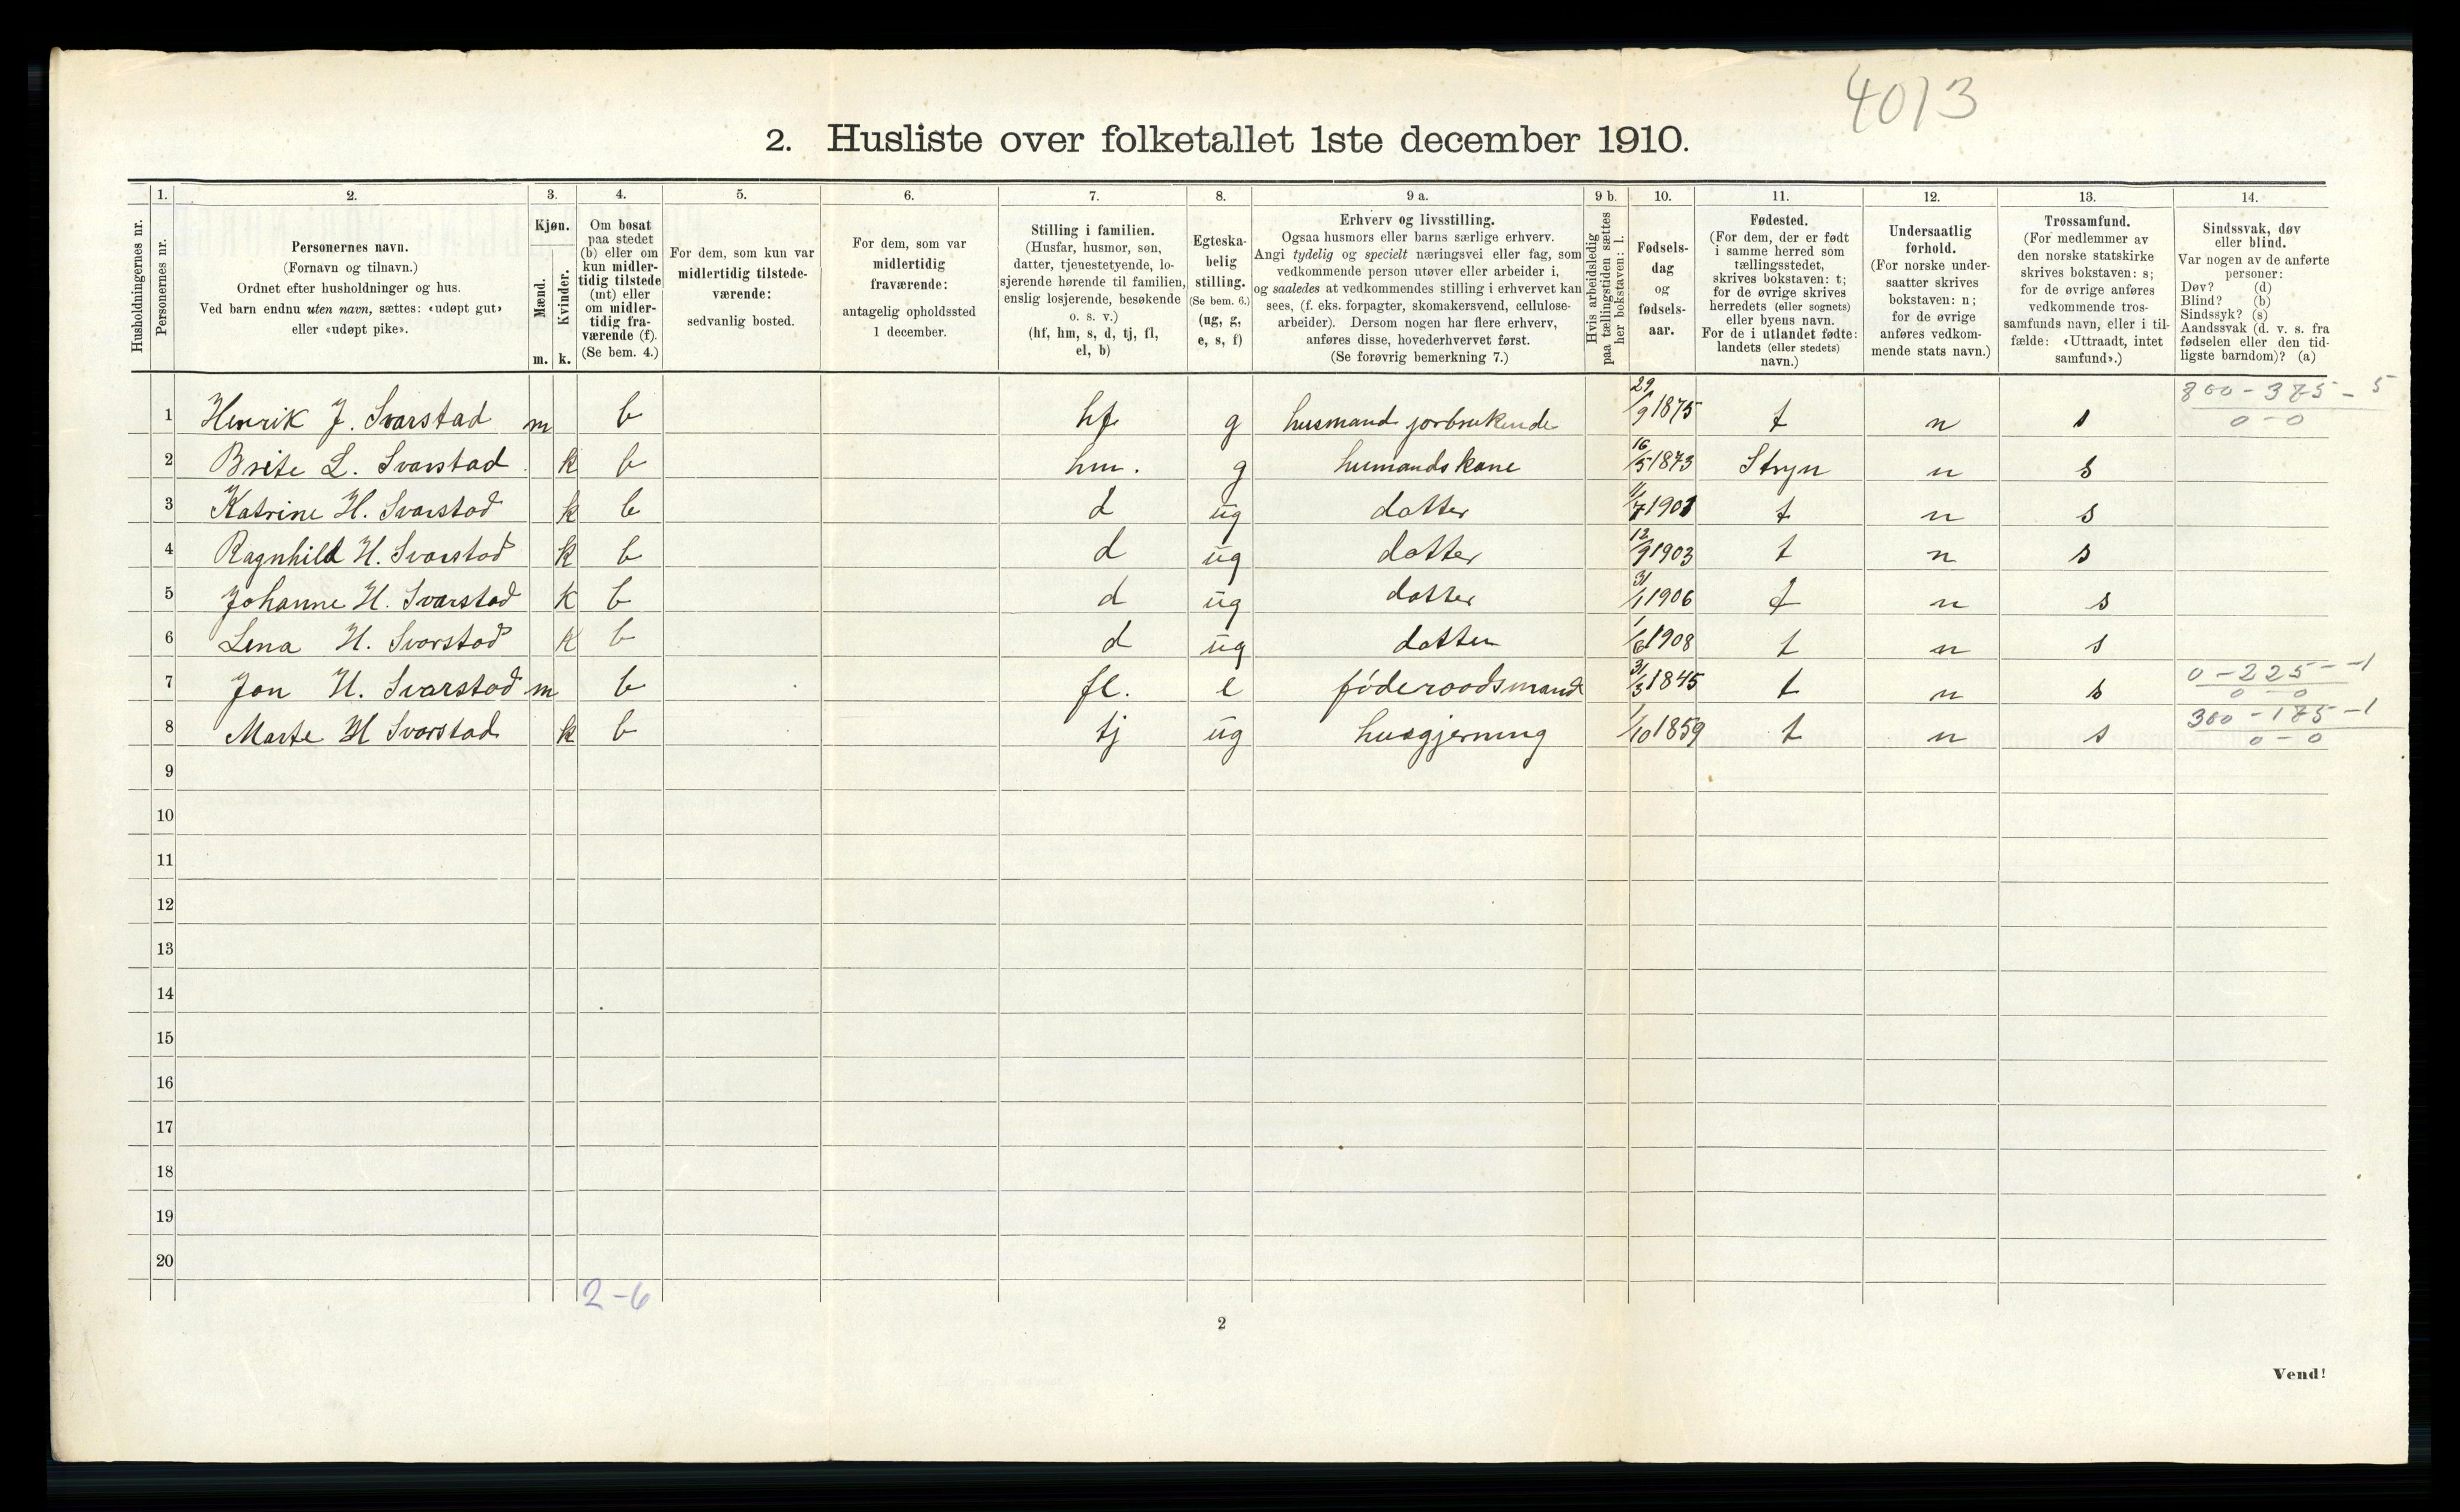 4013
2. Husliste over folketallet 1ste december 1910.
1. 2. 3. 4. 5. 6. 7. 8. 9 a. 9 b. 10. 11. 12. 13. 14.
Husholdningernes nr.
Personernes nr.
Personernes navn.
(Fornavn og tilnavn.)
Ordnet efter husholdninger og hus.
Ved barn endnu uten navn, sættes: «udøpt gut»
eller «udøpt pike».
Kjøn.
Mænd.
Kvinder.
m. k.
Om bosat
paa stedet
(b) eller om
kun midler-
tidig tilstede
(mt) eller
om midler-
tidig fra-
værende (f).
(Se bem. 4.)
For dem, som kun var
midlertidig tilstede-
værende:
sedvanlig bosted.
For dem, som var
midlertidig
fraværende:
antagelig opholdssted
1 december.
Stilling i familien.
(Husfar, husmor, søn,
datter, tjenestetyende, lo-
sjerende hørende til familien,
enslig losjerende, besøkende
o. s. v.)
(hf, hm, s, d, tj, fl,
el, b)
Egteska-
belig
stilling.
(Se bem. 6.)
(ug, g,
e, s, f)
Erhverv og livsstilling.
Ogsaa husmors eller barns særlige erhverv.
Angi tydelig og specielt næringsvei eller fag, som
vedkommende person utøver eller arbeider i,
og saaledes at vedkommendes stilling i erhvervet kan
sees, (f. eks. forpagter, skomakersvend, cellulose-
arbeider). Dersom nogen har flere erhverv,
anføres disse, hovederhvervet først.
(Se forøvrig bemerkning 7.)
Hvis arbeidsledig
paa tællingstiden sættes
her bokstaven: l.
Fødsels-
dag
og
fødsels-
aar.
Fødested.
(For dem, der er født
i samme herred som
tællingsstedet,
skrives bokstaven: t;
for de øvrige skrives
herredets (eller sognets)
eller byens navn.
For de i utlandet fødte:
landets (eller stedets)
navn.)
Undersaatlig
forhold.
(For norske under-
saatter skrives
bokstaven: n;
for de øvrige
anføres vedkom-
mende stats navn.)
Trossamfund.
(For medlemmer av
den norske statskirke
skrives bokstaven: s;
for de øvrige anføres
vedkommende tros-
samfunds navn, eller i til-
fælde: «Uttraadt, intet
samfund».)
Sindssvak, døv
eller blind.
Var nogen av de anførte
personer:
Døv? (d)
Blind? (b)
Sindssyk? (s)
Aandssvak (d. v. s. fra
fødselen eller den tid-
ligste barndom)? (a)
800 - 375 - 5
1 Henrik J. Svarstad m b hf g husmand jorbrukende 29/9 1875 t n s 0 - 0
2 Brite L. Svarstad k b hm. g humandskone 16/5 1873 Stryn n s
3 Katrine H. Svarstad k b d ug datter 11/7 1901 t n s
4 Ragnhild H. Svarstad k b d ug datter 12/9 1903 t n s
5 Johanne H. Svarstad k b d ug datter 31/1 1906 t n s
6 Lena H. Svarstad k b d ug datter 1/6 1908 t n s
0 - 225 - 1
7 Jon H. Svarstad m b fl. e föderaadsmand 31/3 1845 t n s 0 - 0
300 - 175 - 1
8 Marte H Svarstad k b tj ug husgjerning 1/10 1859 t n s 0 - 0
9
10
11
12
13
14
15
16
17
18
19
20
2-6
2
Vend!